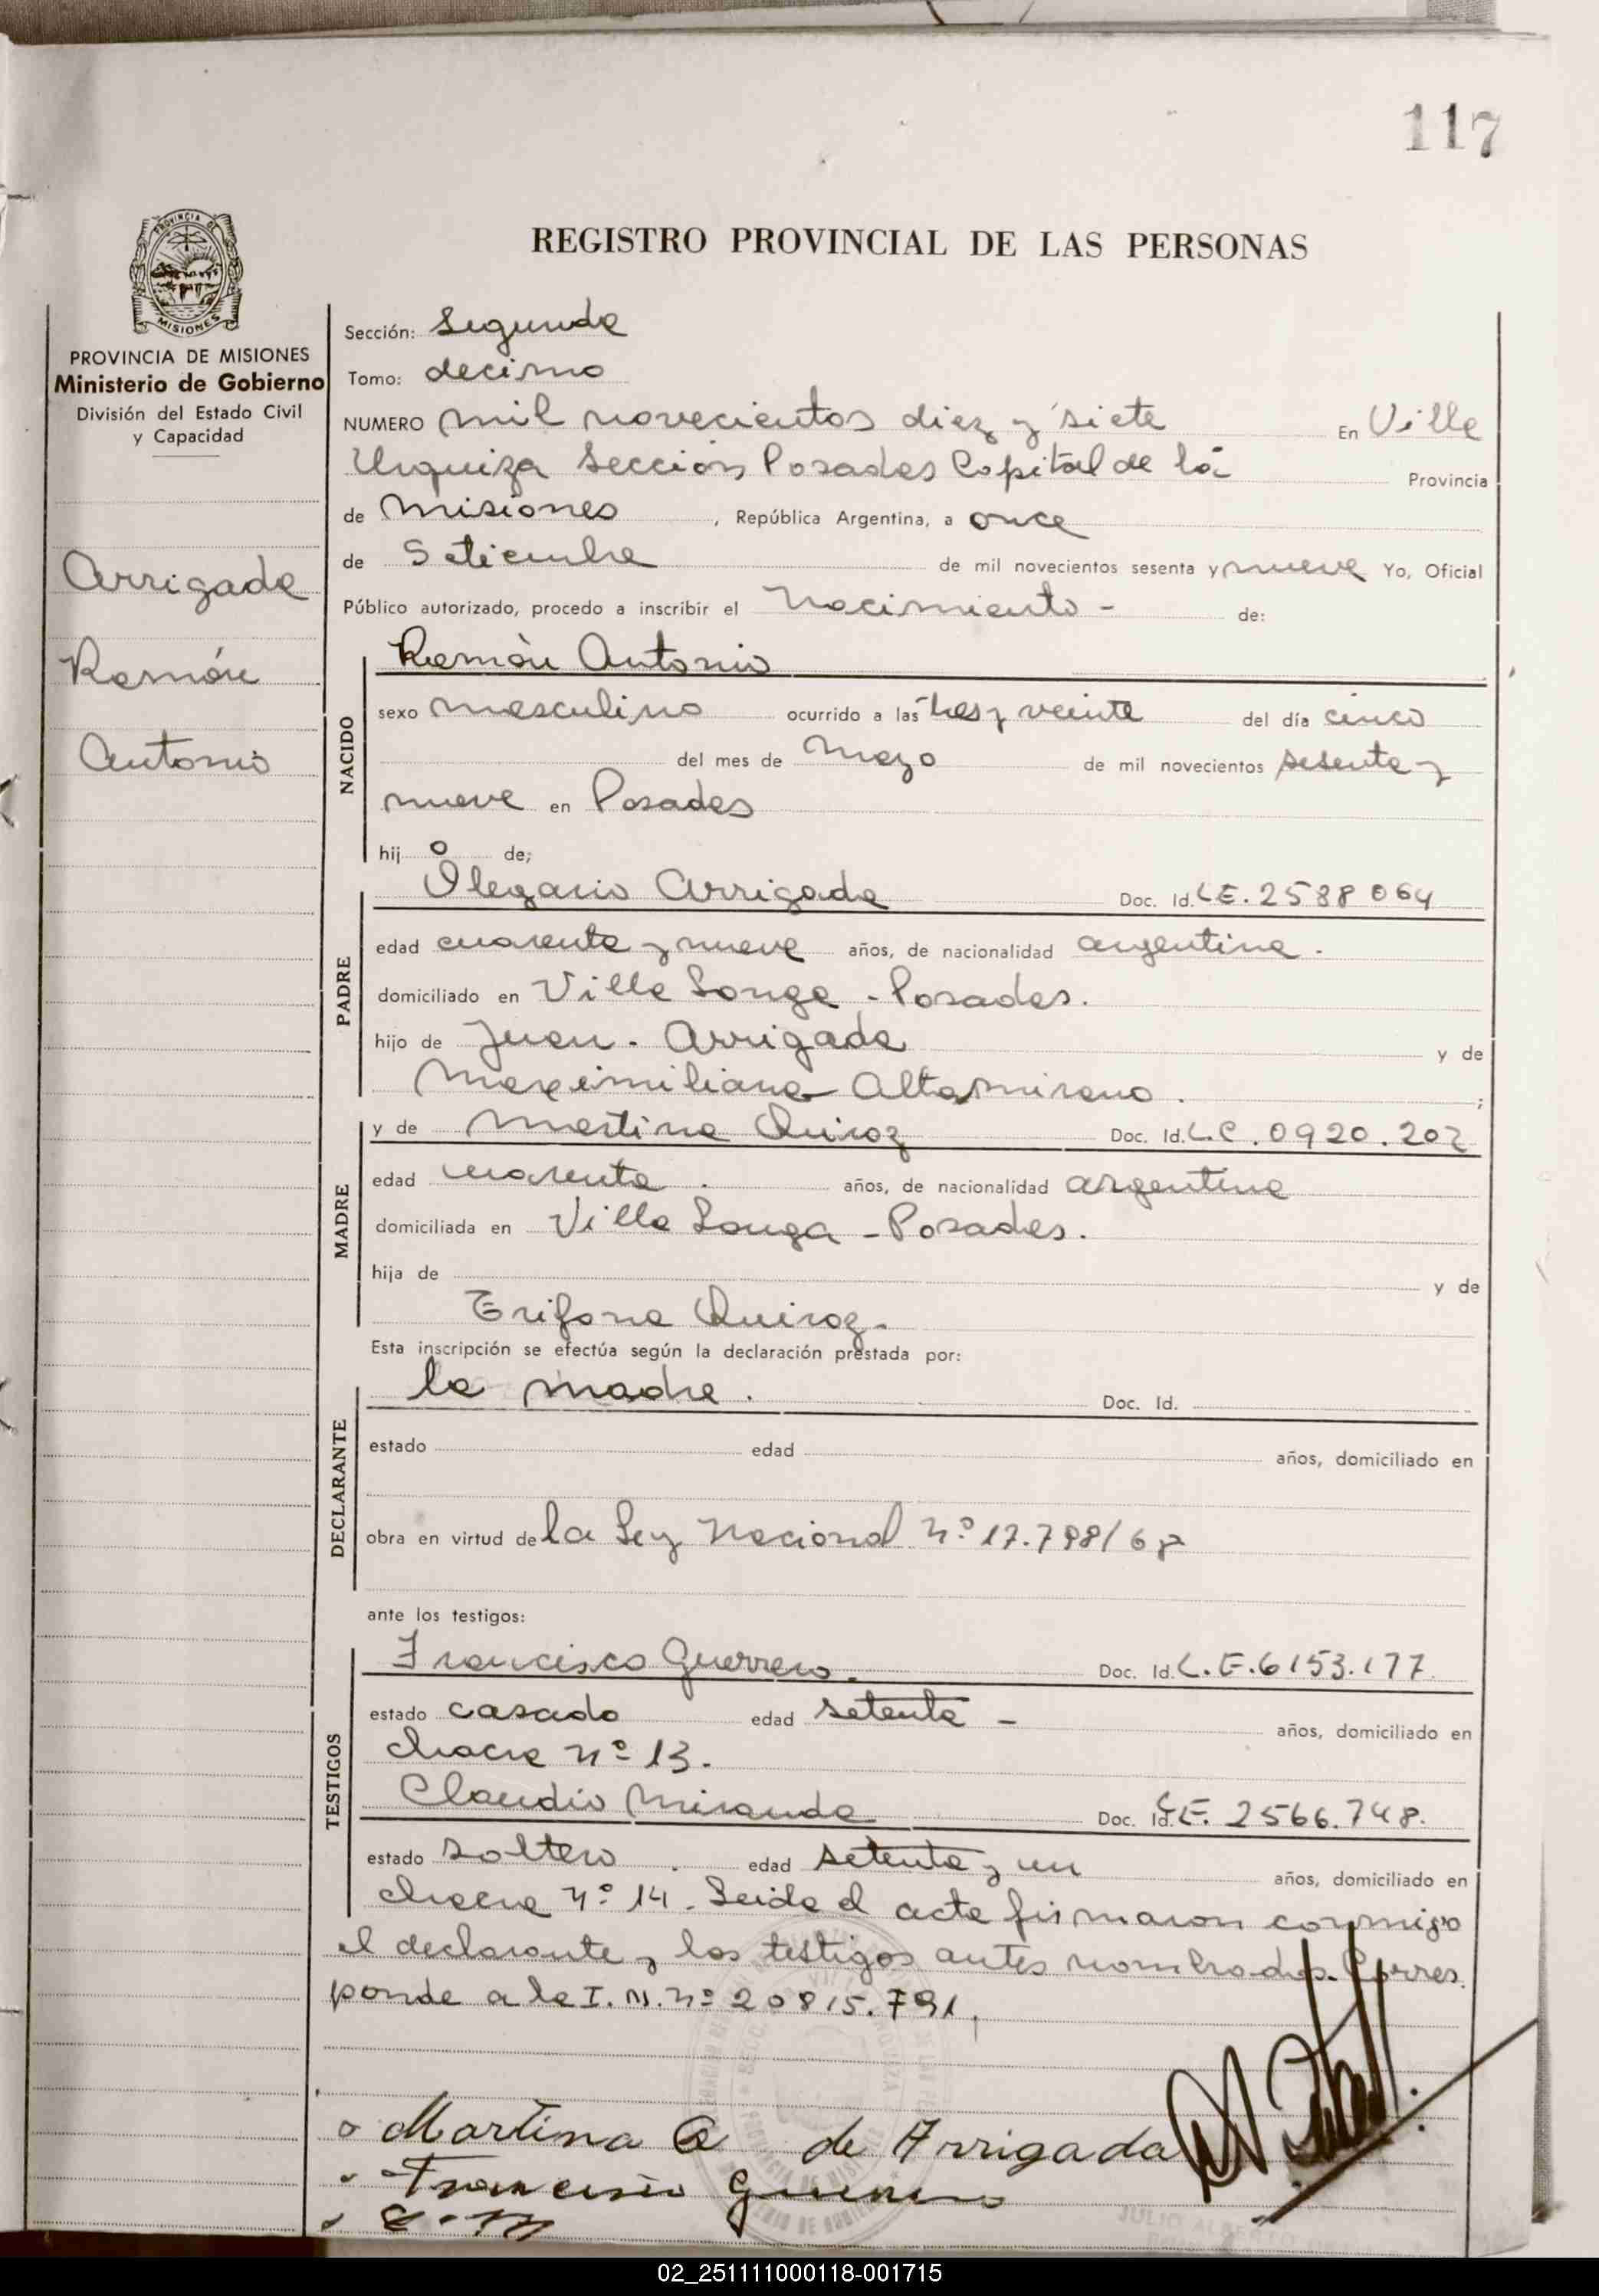 117
PROVINCIA DE
MISIONES
PROVINCIA DE MISIONES
Ministerio de Gobierno
División del Estado Civil
y Capacidad
Arrigada
Ramón
Antonio
REGISTRO PROVINCIAL DE LAS PERSONAS
Sección: Segunda
Tomo: decimo
NUMERO mil novecientos diez y siete En Villa
Urquiza Sección Posadas Capital de la Provincia
de Misiones, República Argentina, a once
de Setiembre de mil novecientos sesenta y nueve Yo, Oficial
Público autorizado, procedo a inscribir el Nacimiento - de:
NACIDO
Ramón Antonio
sexo masculino ocurrido a las tres y veinte del día cinco
del mes de mayo de mil novecientos sesenta y
nueve en Posadas
hij o de;
PADRE
Olegario Arrigada Doc. Id. L.E. 2588064
edad cuarenta y nueve años, de nacionalidad argentina.
domiciliado en Villa Longa - Posadas.
hijo de Juan Arrigada y de
Maximiliana Altamirano.;
MADRE
y de Martina Quiroz Doc. Id. L.C. 0920.202
edad cuarenta. años, de nacionalidad argentina
domiciliada en Villa Longa - Posadas.
hija de y de
Trifona Quiroz.
Esta inscripción se efectúa según la declaración prestada por:
DECLARANTE
la madre. Doc. Id.
estado edad años, domiciliado en
obra en virtud de la Ley Nacional nº 17.798/68
ante los testigos:
TESTIGOS
Francisco Guerrero. Doc. Id. L.E. 6153.177
estado casado edad setenta - años, domiciliado en
chacra nº 13.
Claudio Miranda Doc. Id. L.E. 2566.748.
estado soltero. edad setenta y un años, domiciliado en
chacra nº 14. Leida el acta firmaron conmigo
el declarante y los testigos antes nombrados. Corres
ponde a la I. M. nº 20815.791.
Martina Q de Arrigada
Francisco Guerrero
JULIO ALBERTO
02_251111000118-001715